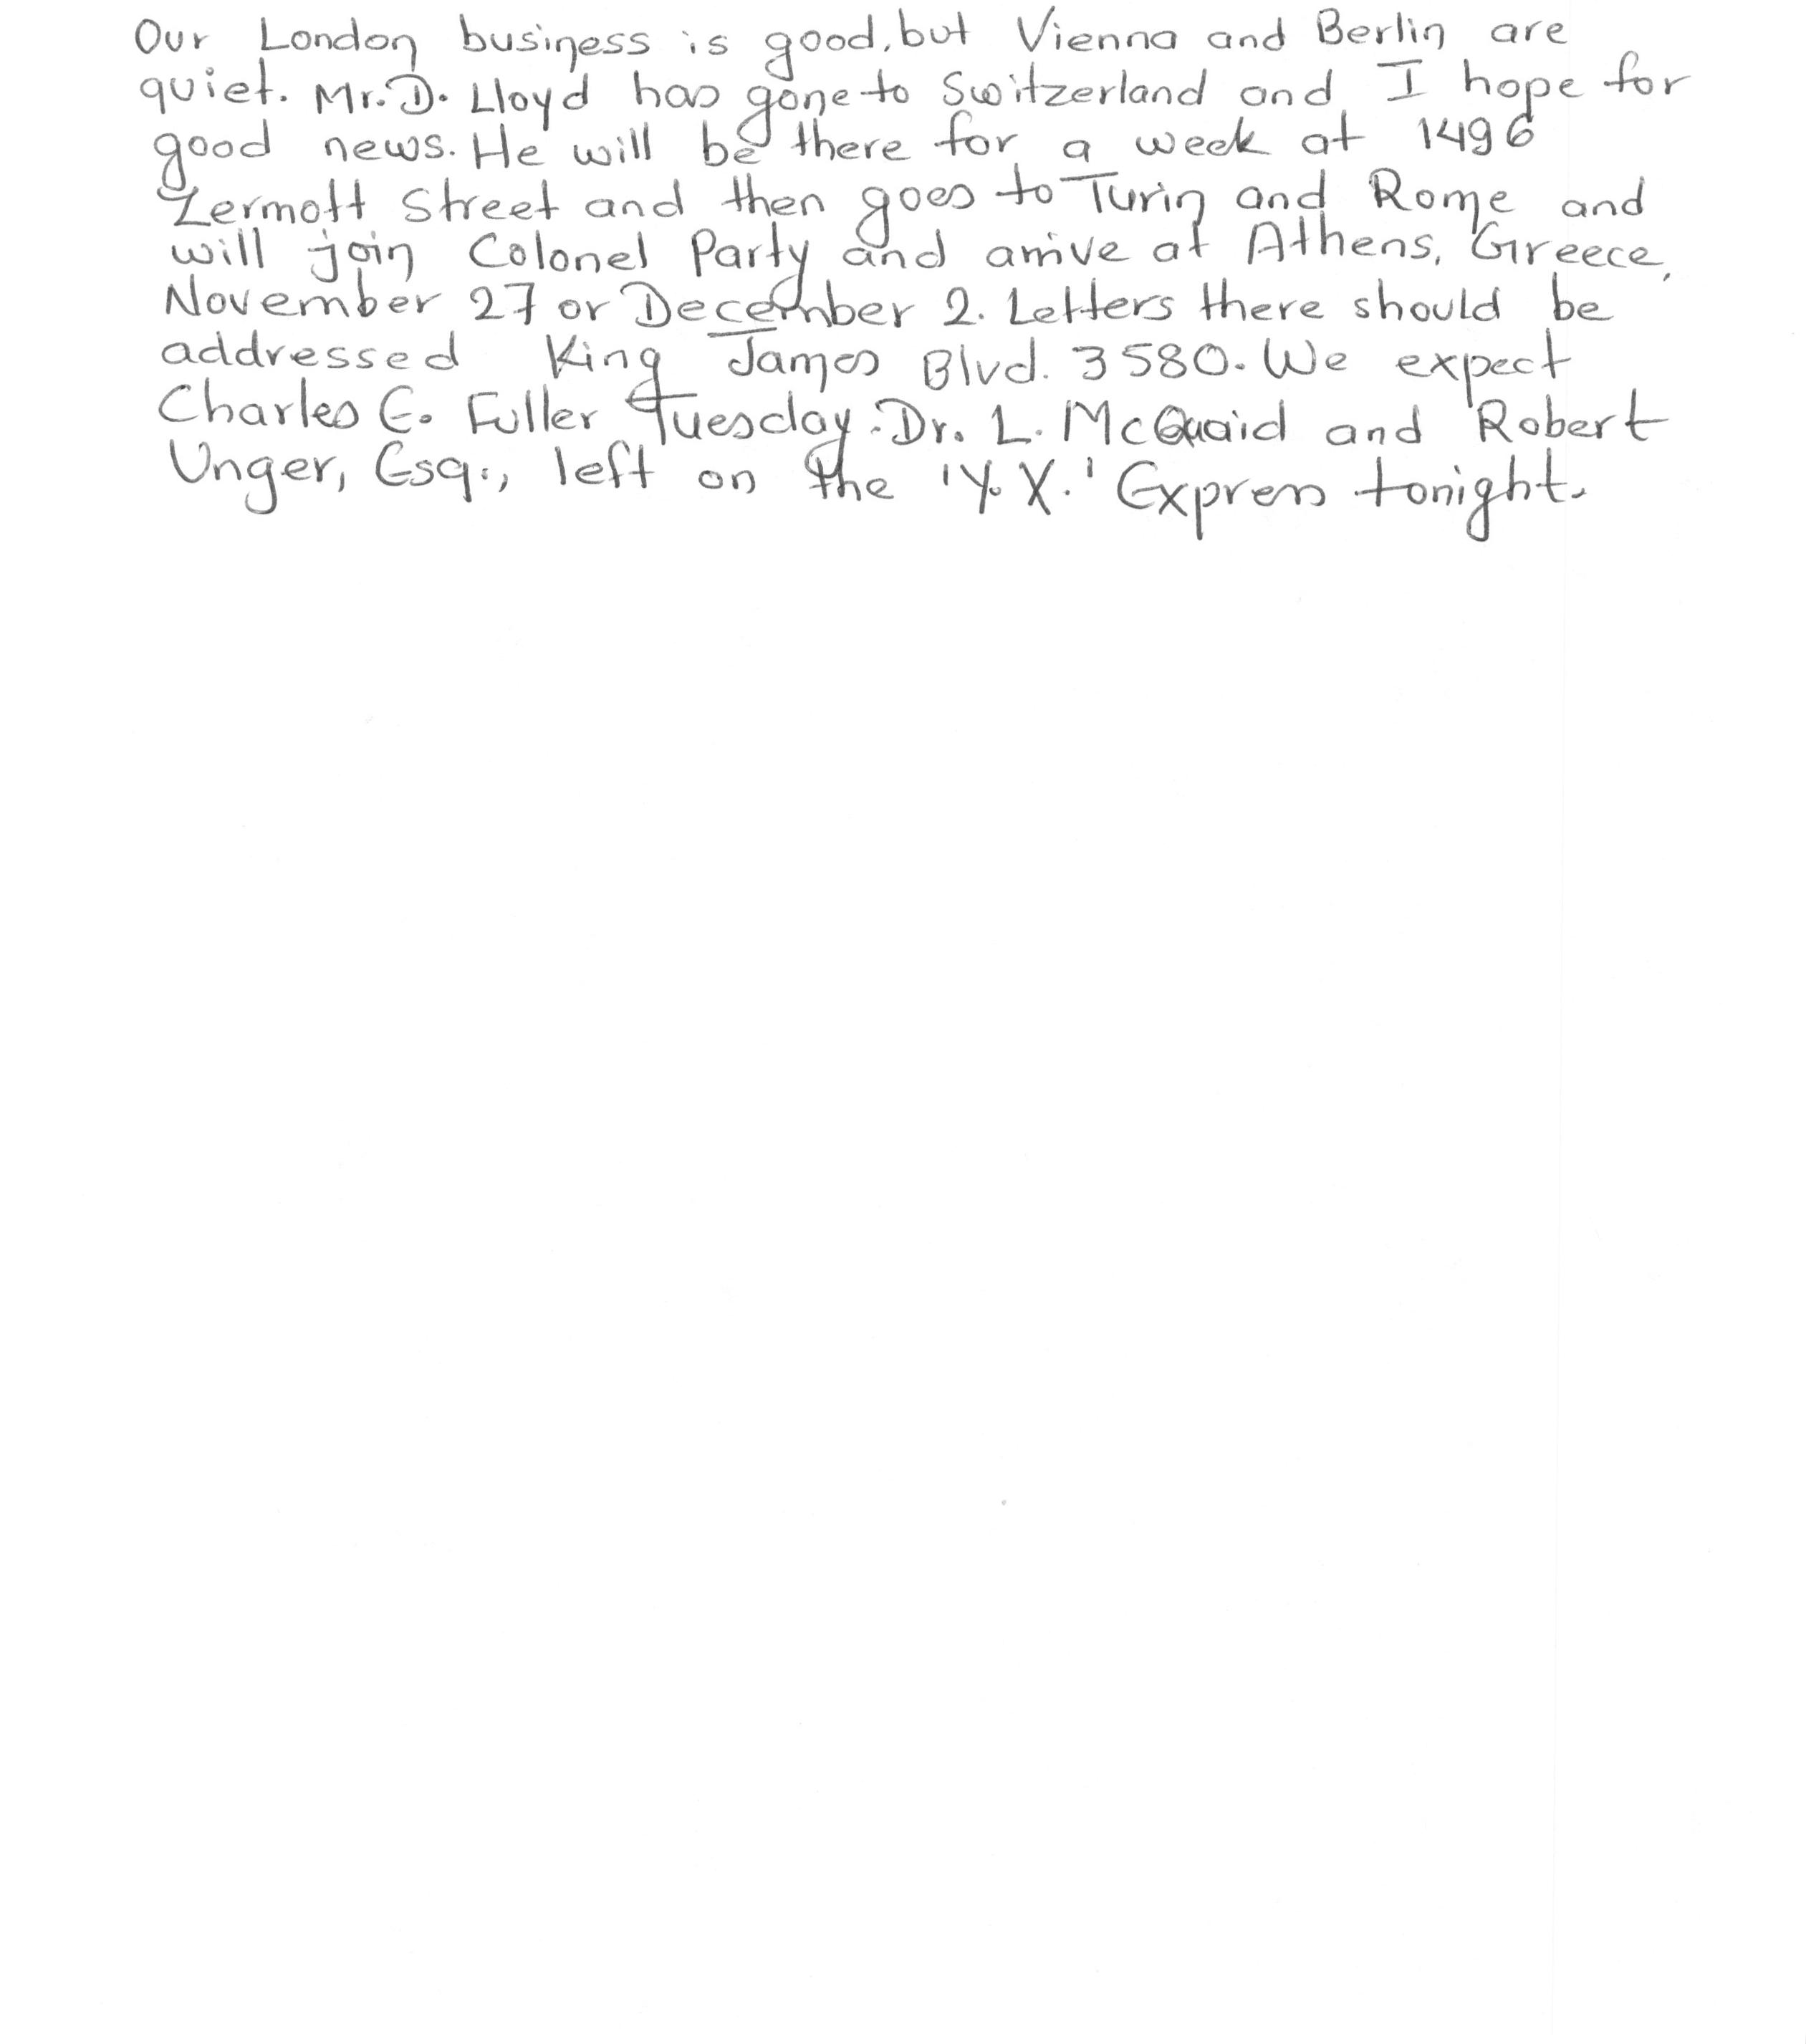 Our London business is good, but Vienna and Berlin are
quiet. Mr. D. Lloyd has gone to Switzerland and I hope for
good news. He will be there for a week at 1496
Zermott Street and then goes to Turin and Rome and
will join Colonel Party and arrive at Athens, Greece,
November 27 or December 2. Letters there should be
addressed King James Blvd. 3580. We expect
Charles E. Fuller Tuesday. Dr. L. McQuaid and Robert
Unger, Esq., left on the 'Y. X.' Express tonight.